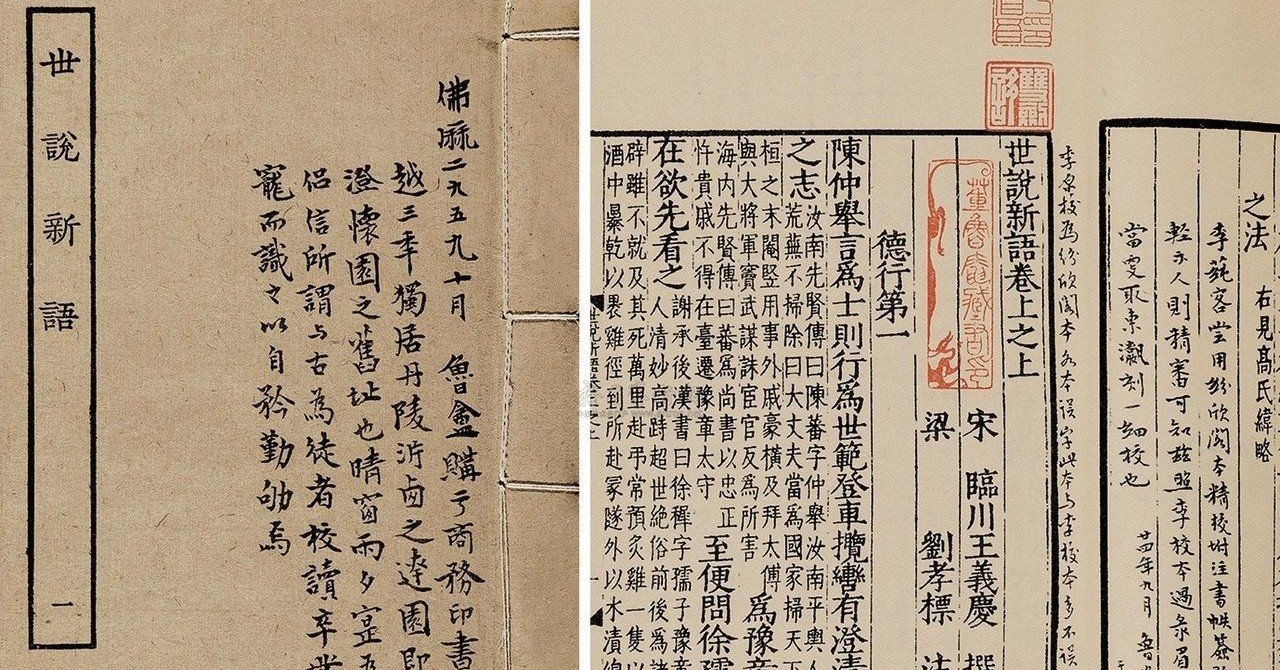 佛厤二九五九十月 魯盦購于商務印書
越三年獨居丹陵沜卤之達園即
澄懷園之舊址也晴窗雨夕寔吾
侶信所謂与古為徒者校讀卒世
寵而識之以自矜勤劬焉
世說新語 一
之法
右見高氏緯略
李蒓客嘗用紛欣閣本精校坿注書帙簽
輕示人則精審可知茲照李校本過彔眉
當更取東瀛刻一細校也
廿四年九月 魯
李原校爲紛欣閣本各本誤字此本与李校本多不誤
世說新語卷上之上
宋 臨川王義慶 撰
梁 劉孝標 注
德行第一
陳仲舉言爲士則行爲世範登車攬轡有澄清
之志
汝南先賢傳曰陳蕃字仲舉汝南平輿人
荒蕪不掃除曰大丈夫當爲國家掃天下
桓之末閹豎用事外戚豪橫及拜太傅
與大將軍竇武謀誅宦官反爲所害
爲豫章
海內先賢傳曰蕃爲尚書以忠正
忤貴戚不得在臺遷豫章太守
至便問徐孺
在欲先看之
謝承後漢書曰徐穉字孺子豫章
人清妙高跱超世絕俗前後爲諸
辟雖不就及其死萬里赴弔常預炙雞一隻以
酒中暴乾以裹雞徑到所赴冢隧外以水漬綿